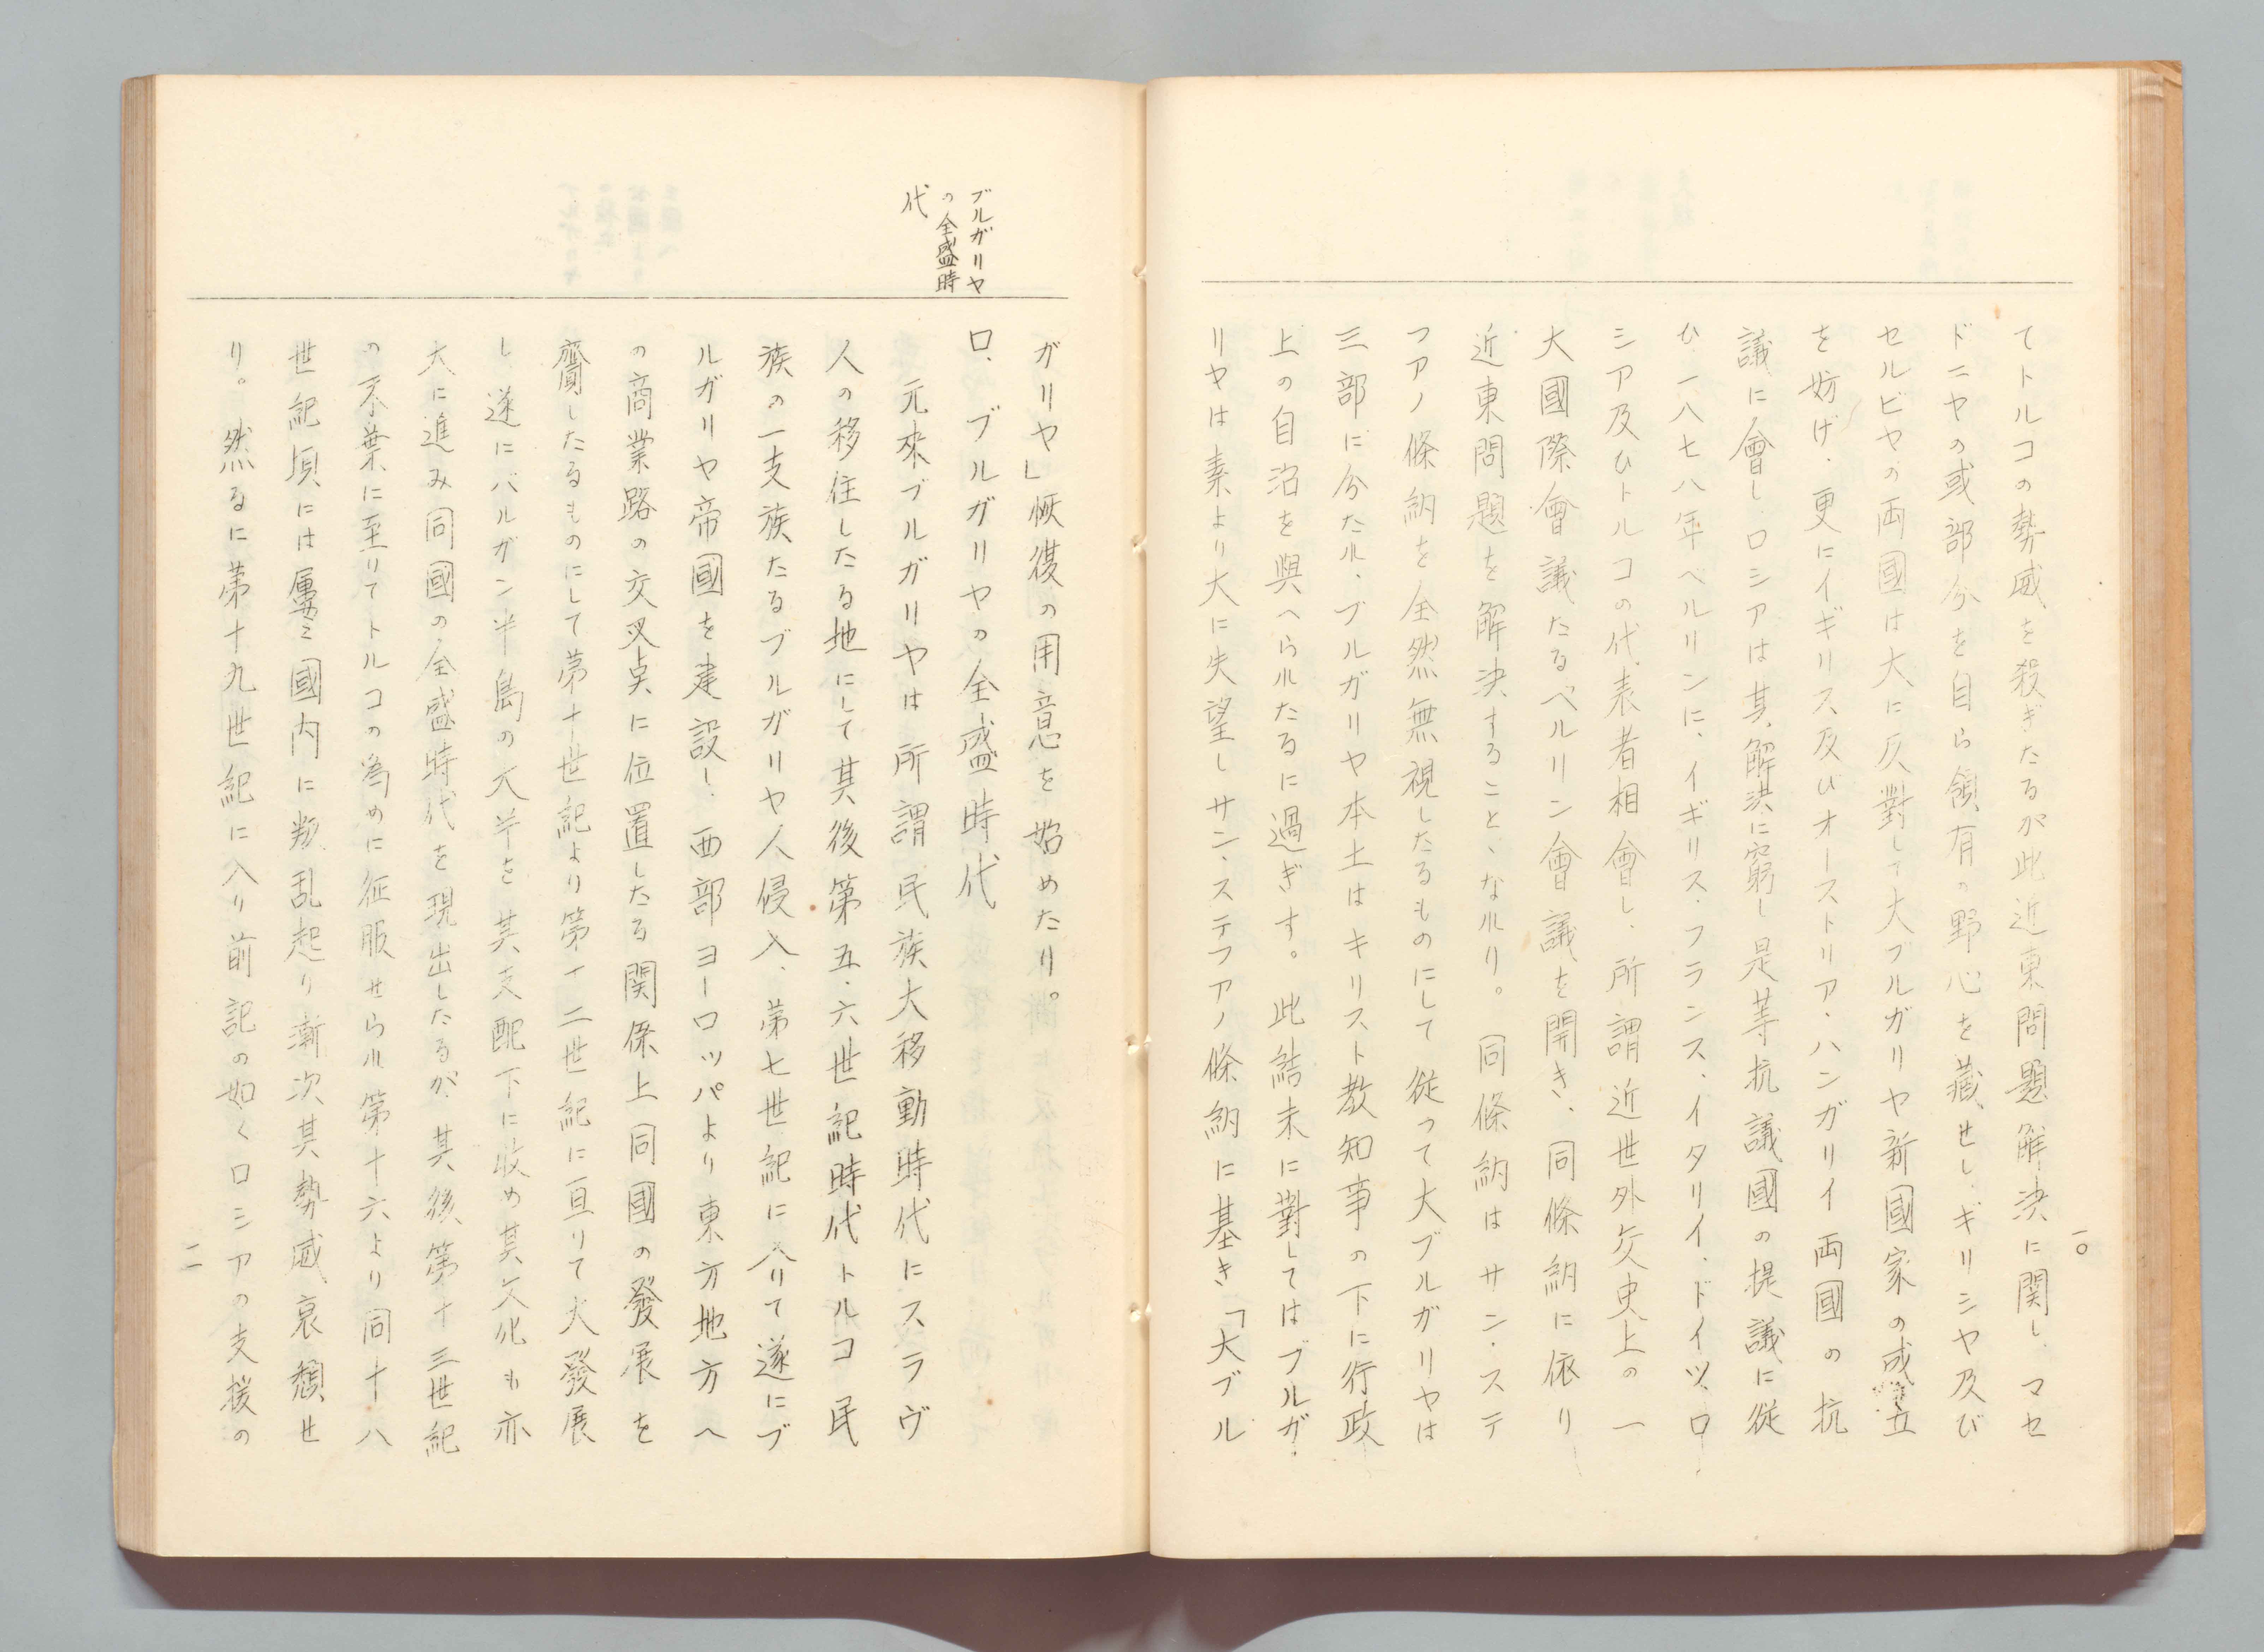 一〇
てトルコの勢威を殺ぎたるが此近東問題解決に関し、マセ
ドニヤの或部分を自ら領有の野心を蔵せし、ギリシヤ及び
セルビヤの両國は大に反對して大ブルガリヤ新國家の成立
を妨げ、更にイギリス及びオーストリア・ハンガリイ両國の抗
議に會し、ロシアは其解決に窮し是等抗議國の提議に従
ひ、一八七八年ベルリンに、イギリス、フランス、イタリイ、ドイツ、ロ
シア及ひトルコの代表者相會し、所謂近世外交史上の一
大國際會議たるベルリン會議を開き、同條約に依り
近東問題を解決することゝなれり。同條約はサン・ステ
フアノ條約を全然無視したるものにして従って大ブルガリヤは
三部に分たれ、ブルガリヤ本土はキリスト教知事の下に行政
上の自治を與へられたるに過ぎす。此結末に對してはブルガ
リヤは素より大に失望しサン・ステフアノ條約に基き「大ブル
ブルガリヤ
の全盛時
代
ガリヤ」恢復の用意を始めたり。
ロ、ブルガリヤの全盛時代
元來ブルガリヤは所謂民族大移動時代にスラヴ
人の移住したる地にして其後第五、六世記時代トルコ民
族の一支族たるブルガリヤ人侵入、第七世紀に入りて遂にブ
ルガリヤ帝國を建設し、西部ヨーロッパより東方地方へ
の商業路の交叉点に位置したる関係上同國の發展を
齎したるものにして第十世記より第十二世紀に亘りて大發展
し遂にバルガン半島の大半を其支配下に收め其文化も亦
大に進み同國の全盛時代を現出したるが、其後第十三世紀
の末葉に至りてトルコの為めに征服せられ第十六より同十八
世紀頃には屢々國内に叛乱起り漸次其勢威衰頽せ
り。然るに第十九世紀に入り前記の如くロシアの支援の
一一